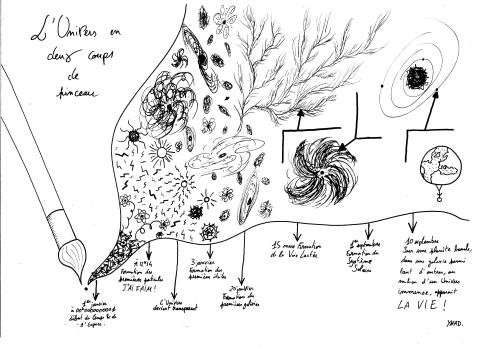 L'Univers en
deux coups
de
pinceau
1er janvier
début du temps et de
l'espace.
à 0h14
Formation des
premières particules
J'AI FAIM!
L'Univers
devient transparent
3 janvier
Formation des
premières étoiles
20 janvier
Formation des
premières galaxies
15 mars Formation
de la Voie Lactée
1er septembre
Formation du
Système
Solaire
10 septembre
Sur une planète banale,
dans une galaxie parmi
tant d'autres, au
milieu d'un Univers
immense, apparait
LA VIE!